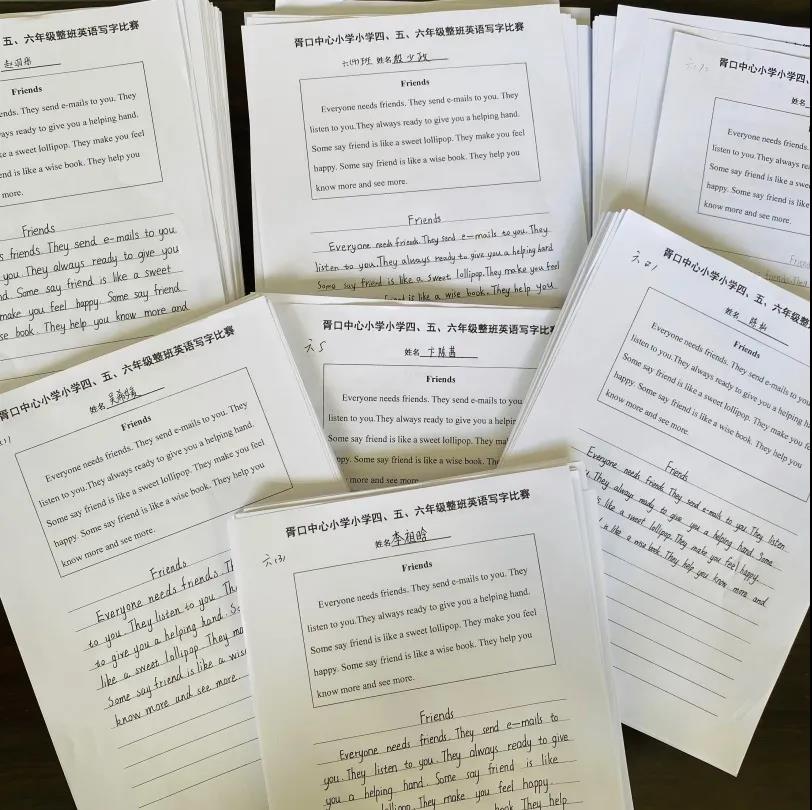 五、六年级整班英语写字比赛
赵羽彤
Friends
ends. They send e-mails to you. They
ays ready to give you a helping hand.
ke a sweet lollipop. They make you feel
nd is like a wise book. They help you
more.
Friends
s friends. They send e-mails to you.
you. They always ready to give you
nd. Some say friend is like a sweet
make you feel happy. Some say friend
se book. They help you know more and
胥口中心小学小学四、五、六年级整班英语写字比赛
六(4)班 姓名 殷少政
Friends
Everyone needs friends. They send e-mails to you. They
listen to you.They always ready to give you a helping hand.
Some say friend is like a sweet lollipop. They make you feel
happy. Some say friend is like a wise book. They help you
know more and see more.
Friends
Everyone needs friends. They send e-mails to you. They
listen to you. They always ready to give you a helping hand
Some say friend is like a sweet lollipop. They make you feel
is like a wise book. They help you
胥口中心小学小学
姓名
Everyone needs friends.
listen to you.They always re
Some say friend is like a
happy. Some say friend is
know more and see more.
Friend
胥口中心小学小学四、五、六年级整班英语写
姓名
Friends
Everyone needs friends. They send e-mails to you
listen to you.They always ready to give you a helping h
Some say friend is like a sweet lollipop. They make you f
happy. Some say friend is like a wise book. They help you
know more and see more.
Friends
Everyone needs friends. They send e-mails to you. They listen
They always ready to give you a helping hand. Some
is like a sweet lollipop. They make you feel happy.
is like a wise book. They help you know more and
胥口中心小学小学四、五、六年级整班英语写字比赛
姓名
Friends
Everyone needs friends. They send e-mails to you. They
listen to you.They always ready to give you a helping hand.
Some say friend is like a sweet lollipop. They make you feel
happy. Some say friend is like a wise book. They help you
know more and see more.
Friends
Everyone needs friends. Th
to you. They listen to you. Th
to give you a helping hand. So
like a sweet lollipop. They ma
Some say friend is like a wis
know more and see more.
胥口中心小学小学四、五、六年级整班英语写字比
六5
姓名 卞陈茜
Friends
Everyone needs friends. They send e-mails to
listen to you.They always ready to give you a helpin
Some say friend is like a sweet lollipop. They mak
ppy. Some say friend is like a wise book. The
more and see more.
胥口中心小学小学四、五、六年级整班英语写字比赛
六(3)
姓名 李祖晗
Friends
Everyone needs friends. They send e-mails to you. They
listen to you.They always ready to give you a helping hand.
Some say friend is like a sweet lollipop. They make you feel
happy. Some say friend is like a wise book. They help you
know more and see more.
Friends
Everyone needs friends. They send e-mails to
you. They listen to you. They always ready to give
you a helping hand. Some say friend is like
lollipop. They make you feel happy.
book. They help